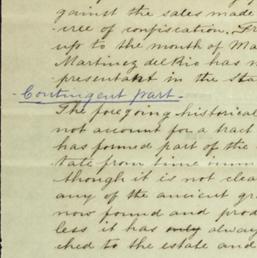 against the sales made
cree of confiscation. Fr
up to the month of Ma
Martinez del Rio has n
presentant in the sta
Contingent part.
The foregoing historical
not account for a tract
has formed part of the
tate from time imm
though it is not clea
any of the ancient gr
now found and prod
less it has only alway
ched to the estate and